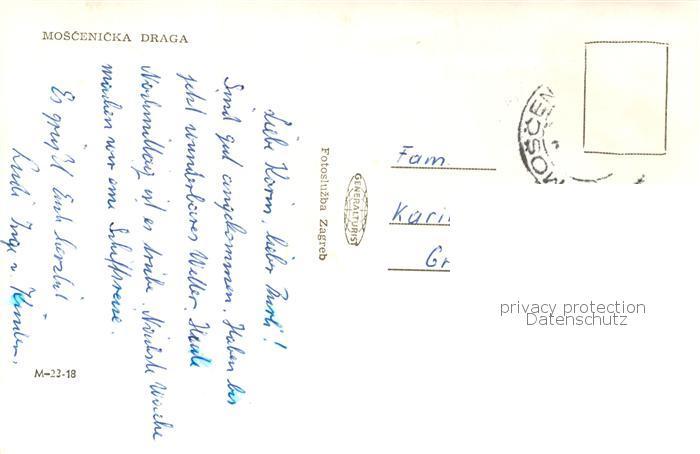 MOŠČENIČKA DRAGA
Liebe Karin, lieber
Sind gut angekommen. Haben bis
jetzt wunderbares Wetter. Heute
Nachmittag ist es trübe. Nächste Woche
machen wir eine Schiffsreise.
Es grüßt Euch herzlich
Kinder.
M-23-18
Fotoslužba Zagreb
GENERALTURIST
MOŠĆEN
Fam.
Kari
Gr
privacy protection
Datenschutz